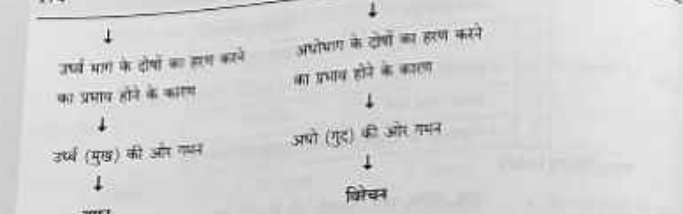 ↓
उर्ध्व भाग के दोषों का हरण करने
का प्रभाव होने के कारण
↓
उर्ध्व (मुख) की ओर गमन
↓
↓
अधोभाग के दोषों का हरण करने
का प्रभाव होने के कारण
↓
अधो (गुद) की ओर गमन
↓
विरेचन